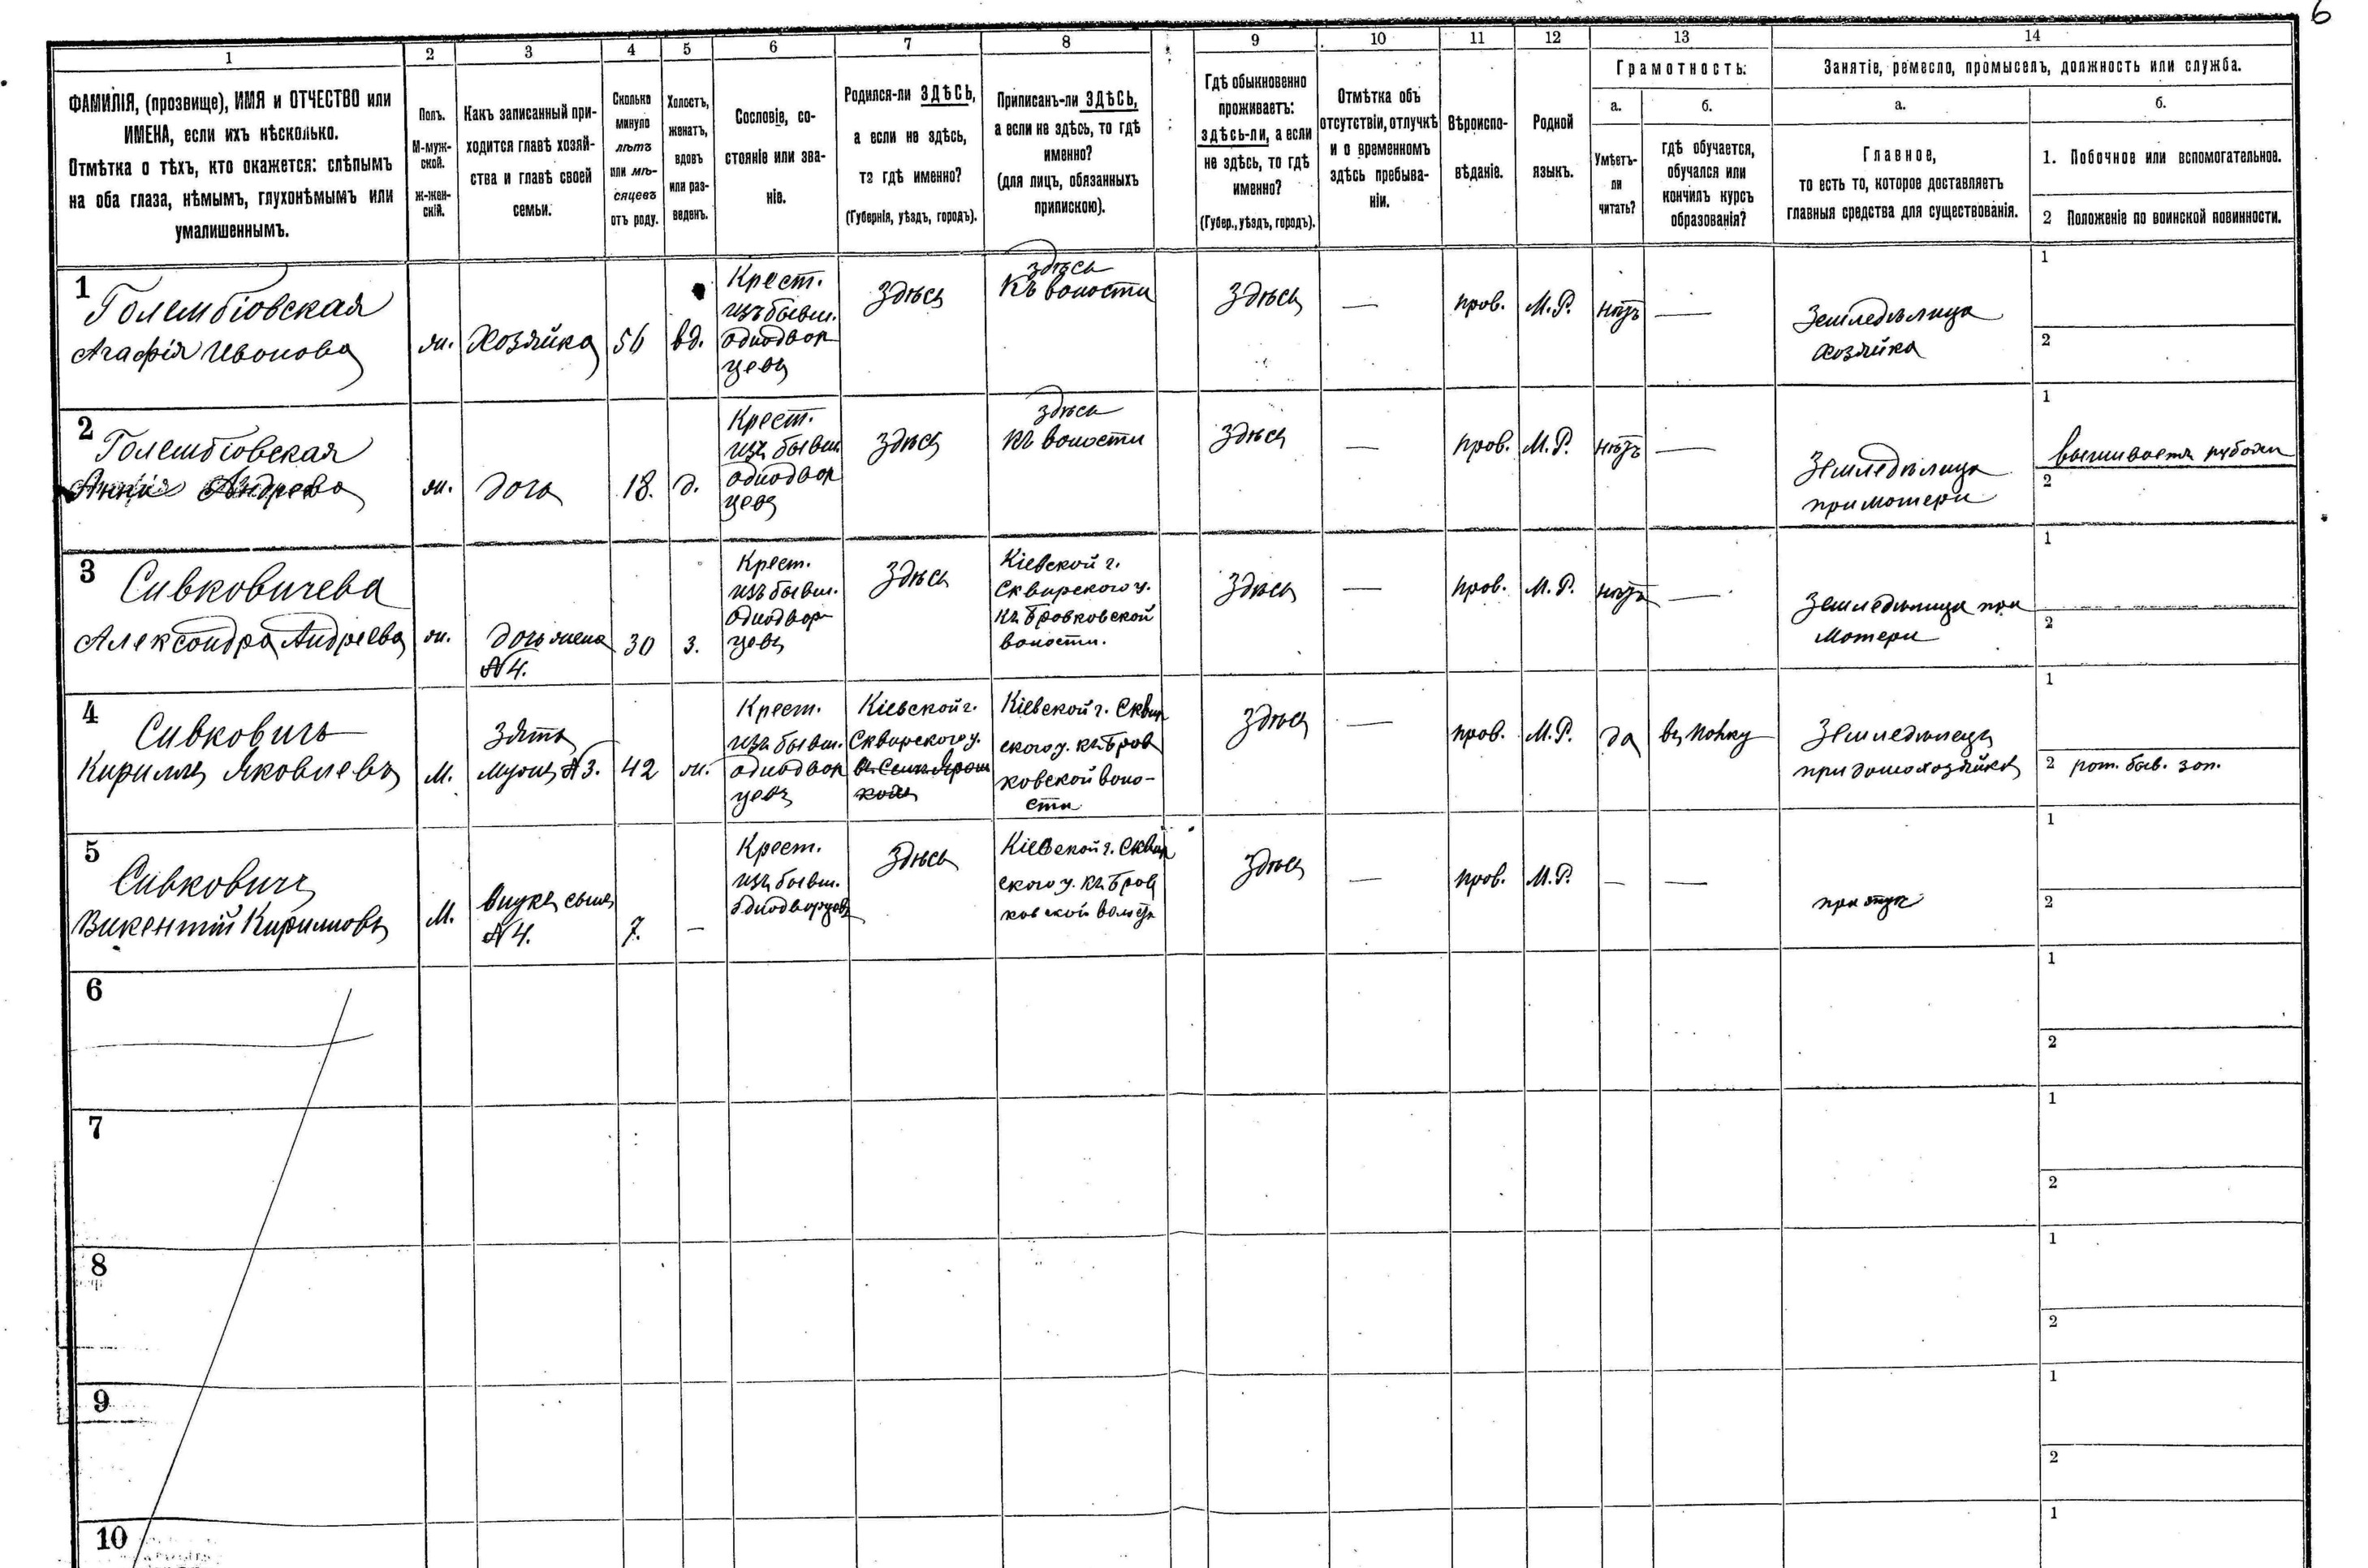 6
1
2
3
4
5
6
7
8
9
10
11
12
13
14
ФАМИЛІЯ, (прозвище), ИМЯ и ОТЧЕСТВО или
ИМЕНА, если ихъ нѣсколько.
Отмѣтка о тѣхъ, кто окажется: слѣпымъ
на оба глаза, нѣмымъ, глухонѣмымъ или
умалишеннымъ.
Полъ.
М-муж-
ской.
ж-жен-
скій.
Какъ записанный при-
ходится главѣ хозяй-
ства и главѣ своей
семьи.
Сколько
минуло
лѣтъ
или мѣ-
сяцевъ
отъ роду.
Холостъ,
женатъ,
вдовъ
или раз-
веденъ.
Сословіе, со-
стояніе или зва-
ніе.
Родился-ли ЗДѢСЬ,
а если не здѣсь,
то гдѣ именно?
(Губернія, уѣздъ, городъ).
Приписанъ-ли ЗДѢСЬ,
а если не здѣсь, то гдѣ
именно?
(для лицъ, обязанныхъ
припискою).
Гдѣ обыкновенно
проживаетъ:
здѣсь-ли, а если
не здѣсь, то гдѣ
именно?
(Губер., уѣздъ, городъ).
Отмѣтка объ
отсутствіи, отлучкѣ
и о временномъ
здѣсь пребыва-
ніи.
Вѣроиспо-
вѣданіе.
Родной
языкъ.
Грамотность:
а.
Умѣетъ-
ли
читать?
б.
гдѣ обучается,
обучался или
кончилъ курсъ
образованія?
Занятіе, ремесло, промыселъ, должность или служба.
а.
Главное,
то есть то, которое доставляетъ
главныя средства для существованія.
б.
1. Побочное или вспомогательное.
2 Положеніе по воинской повинности.
1
Голембіовская
Агафія Иванова
ж.
Хозяйка
56
вд.
Крест.
изъ бывш.
однодвор
цевъ
Здѣсь
здѣсь
Къ волости
Здѣсь
—
прав.
М. Р.
нѣтъ
—
Земледѣлица
хозяйка
1
2
2
Голембіовская
Анна Андреева
ж.
дочь
18.
д.
Крест.
изъ бывш.
однодвор
цевъ
здѣсь
здѣсь
къ волости
Здѣсь
—
прав.
М. Р.
нѣтъ
—
Земледѣлица
при матери
1
вышиваетъ рубахи
2
3
Сивковичева
Александра Андреева
ж.
дочь жена
№ 4.
30
з.
Крест.
изъ бывш.
однодвор
цевъ
Здѣсь
Кіевской г.
Сквирского у.
къ Бровковской
волости.
Здѣсь
—
прав.
М. Р.
нѣтъ
—
Земледѣлица при
матери
1
2
4
Сивковичъ
Кириллъ Яковлевъ
М.
Зять
мужъ № 3.
42
ж.
Крест.
изъ бывш.
однодвор
цевъ
Кіевской г.
Сквирского у.
Кіевской г. Сквир
ского у. къ Бров
ковской воло-
сти
Здѣсь
—
прав.
М. Р.
да
въ полку
Земледѣлецъ
при домохозяйкѣ
1
2 рат. быв. зап.
5
Сивковичъ
Викентій Кирилловъ
М.
внукъ сынъ
№ 4.
7.
—
Крест.
изъ бывш.
однодворцевъ
Здѣсь
Кіевской г. Сквир
ского у. къ Бров
ковской волости
Здѣсь
—
прав.
М. Р.
—
—
при отцѣ
1
2
6
1
2
7
1
2
8
1
2
9
1
2
10
1